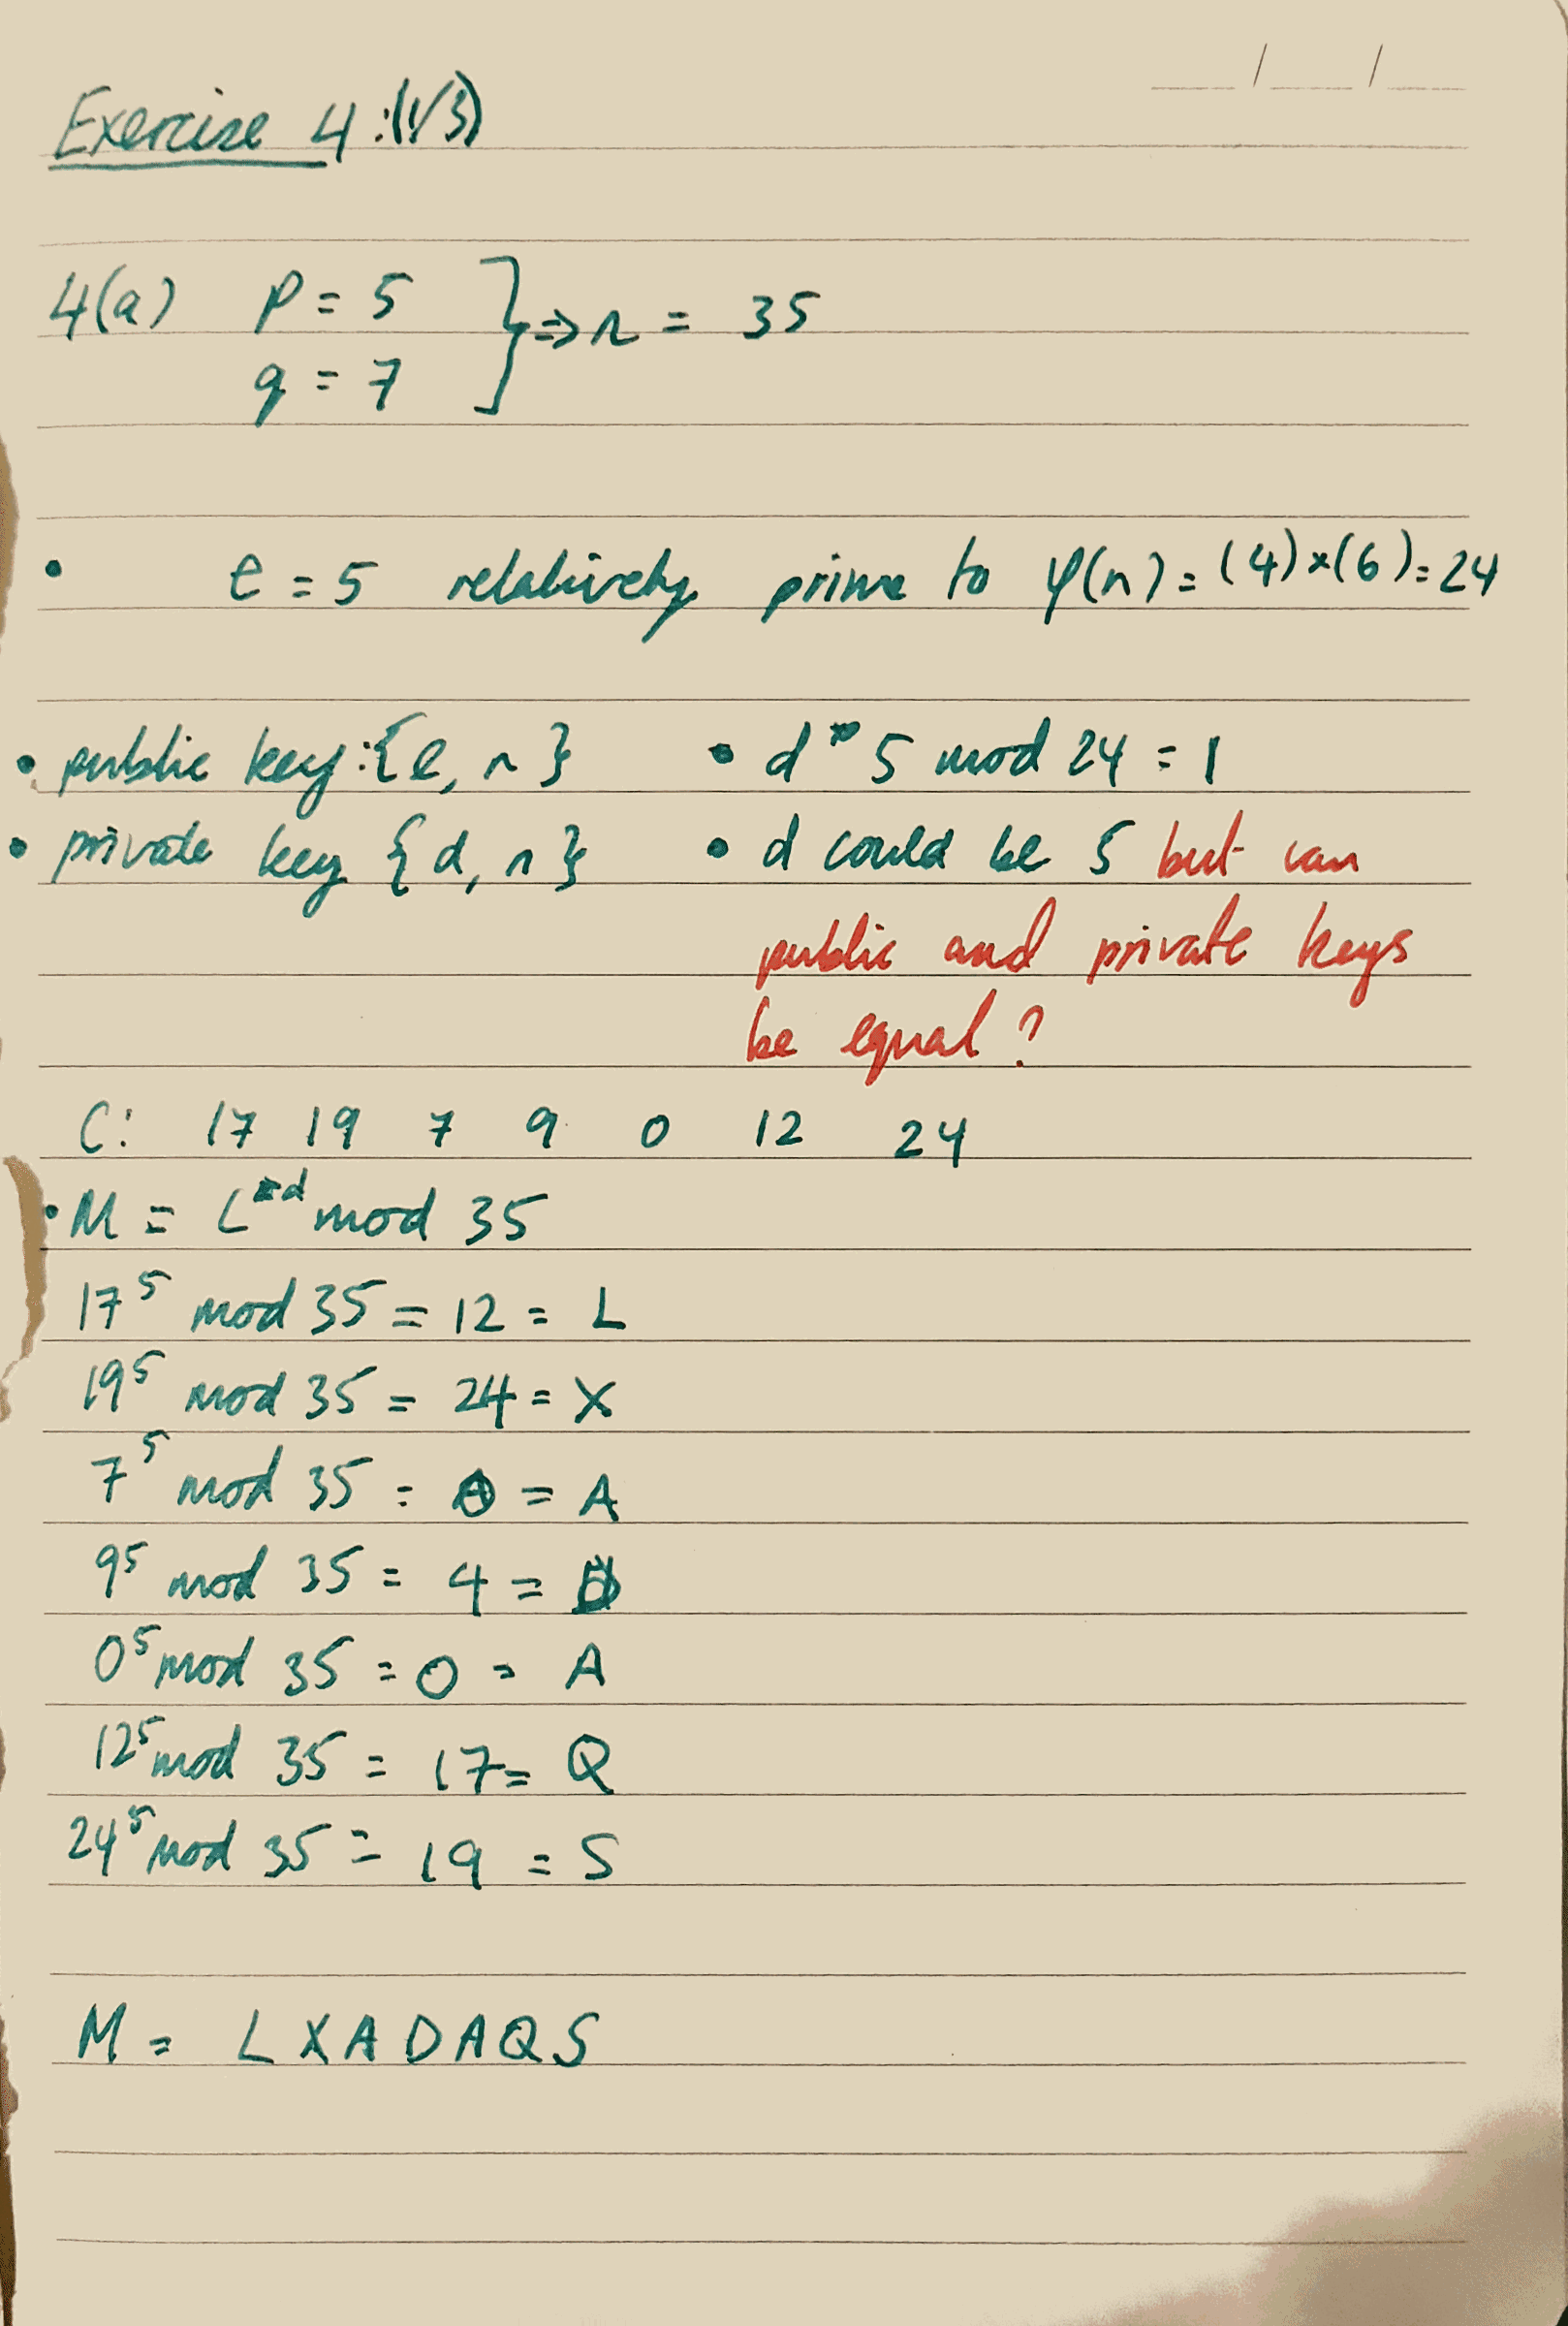 Exercise 4:(1/3)
4(a) p = 5
q = 7
} => n = 35
• e = 5 relatively prime to φ(n) = (4)×(6) = 24
• public key:{e, n}
• private key {d, n}
• d * 5 mod 24 = 1
• d could be 5 but can
public and private keys
be equal?
C: 17 19 7 9 0 12 24
• M = C^d mod 35
17^5 mod 35 = 12 = L
19^5 mod 35 = 24 = X
7^5 mod 35 = = A
9^5 mod 35 = 4 = D
0^5 mod 35 = 0 = A
12^5 mod 35 = 17 = Q
24^5 mod 35 = 19 = S
M = L X A D A Q S